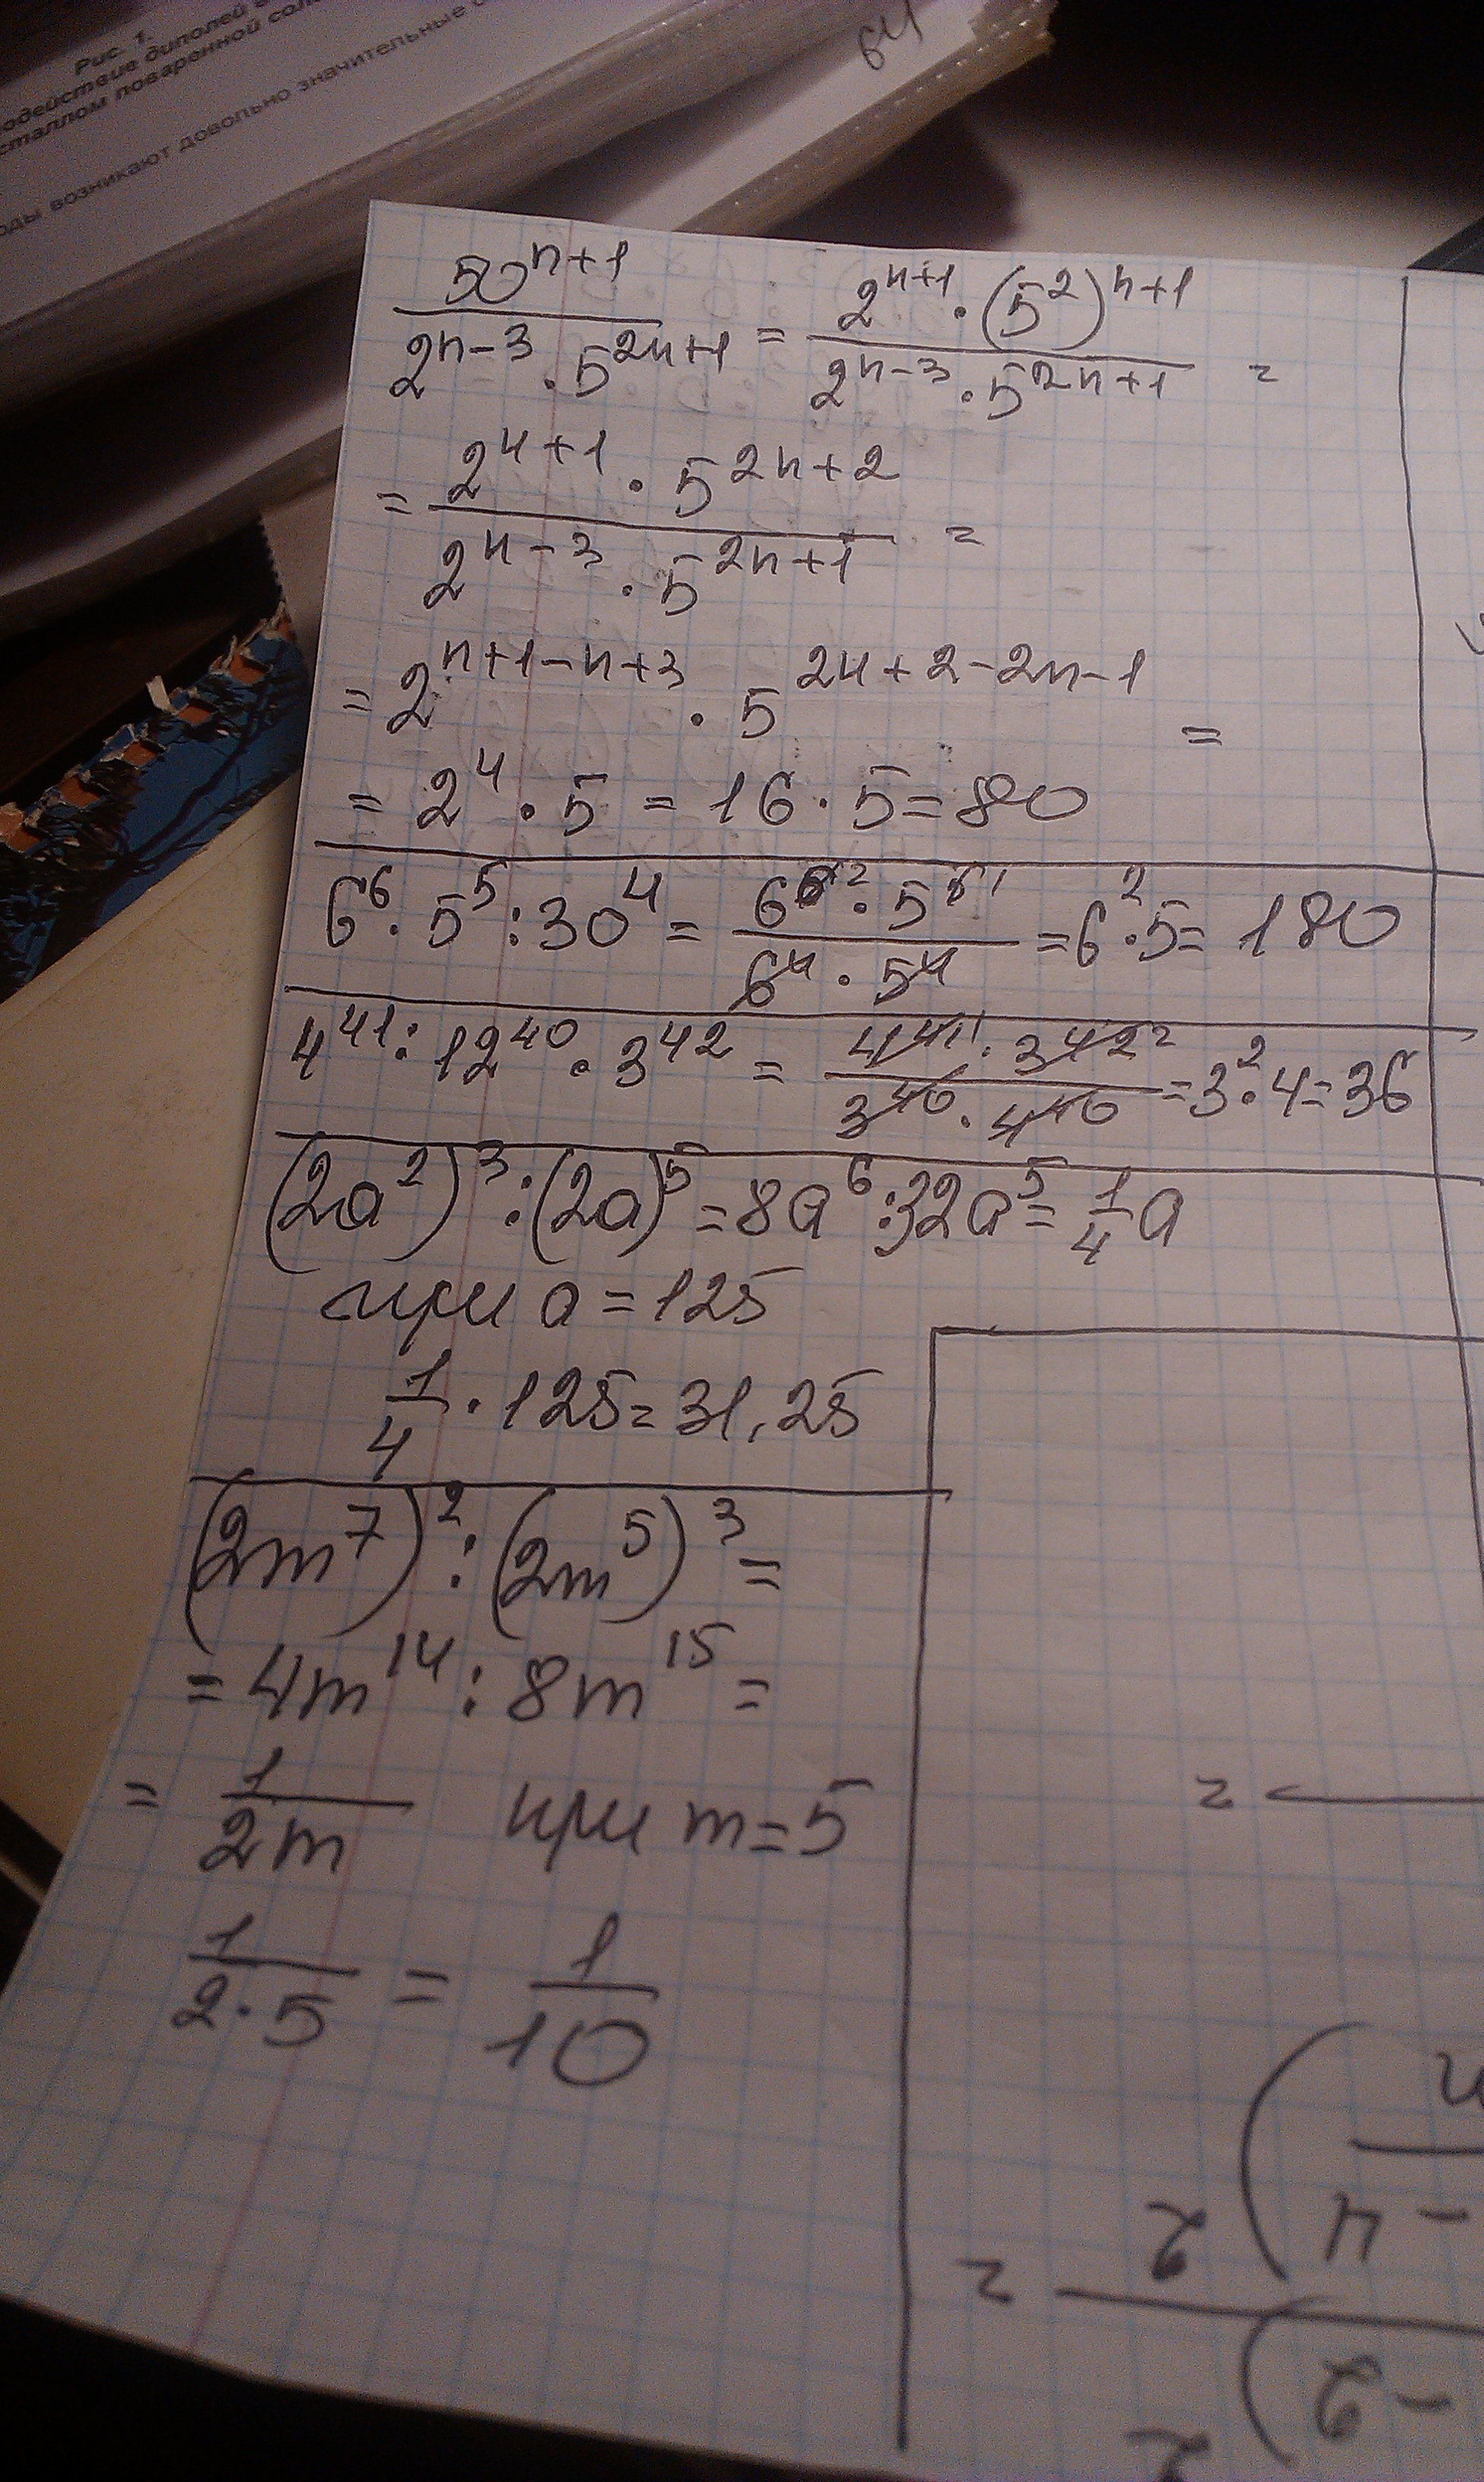 Рис. 1.
действие диполей
сталлом поваренной
оды возникают довольно значительные
64
50^{n+1} / (2^{n-3} · 5^{2n+1}) = 2^{n+1} · (5^2)^{n+1} / (2^{n-3} · 5^{2n+1}) =
= 2^{n+1} · 5^{2n+2} / (2^{n-3} · 5^{2n+1}) =
= 2^{n+1-n+3} · 5^{2n+2-2n-1} =
= 2^4 · 5 = 16 · 5 = 80
6^6 · 5^5 : 30^4 = 6^{6 2} · 5^{5 1} / (6^4 · 5^4) = 6^2 · 5 = 180
4^{41} : 12^{40} · 3^{42} = 4^{41 1} · 3^{42 2} / (3^{40} · 4^{40}) = 3^2 · 4 = 36
(2a^2)^3 : (2a)^5 = 8a^6 : 32a^5 = 1/4 a
при a = 125
1/4 · 125 = 31,25
(2m^7)^2 : (2m^5)^3 =
= 4m^{14} : 8m^{15} =
= 1/(2m) при m = 5
1/(2·5) = 1/10